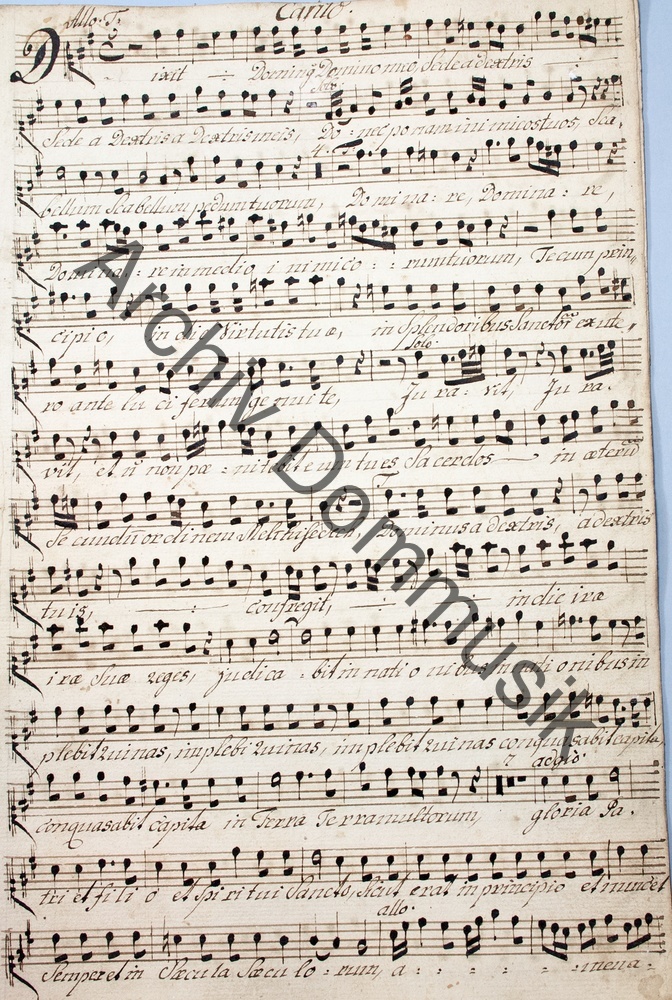 Canto.
Allo. T.
Dixit Dominus Domino meo, Sede a dextris
Solo.
Sede a Dextris a Dextris meis, Do: nec ponam inimicos tuos, Sca,
bellum Scabellum pedum tuorum, Domina: re, Domina: re,
Domina: re in medio inimico: rum tuorum, Tecum prin,,
cipio, in die Virtutis tuæ, in Splendoribus Sanctor: ex ute,
Solo.
ro ante luciferum genui te, Jura: vit, Jura.
vit, et non pæ: nitebit eum tu es Sacerdos in æternu
T.
Secundu ordinem Melchisedech, Dominus a dextris, a dextris
tuis, confregit, in die iræ
iræ Suæ reges, judica: bit in nationibus in nationibus in
plebit ruinas, implebit ruinas, implebit ruinas conquasabit capita
adgio.
conquasabit Capita in Terra Terra multorum, gloria Pa.
tri et filio et Spiritui Sancto, Sicut erat in principio et nunc et
allo.
Semper et in Sæcula Sæculo: rum, a: : : : mena:
Archiv Dommusik